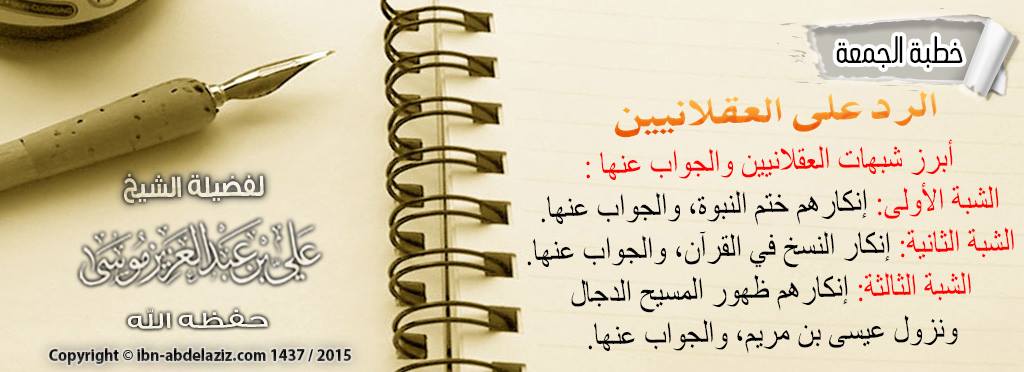 خطبة الجمعة
الرد على العقلانيين
أبرز شبهات العقلانيين والجواب عنها :
الشبة الأولى: إنكارهم ختم النبوة، والجواب عنها.
الشبة الثانية: إنكار النسخ في القرآن، والجواب عنها.
الشبة الثالثة: إنكارهم ظهور المسيح الدجال
ونزول عيسى بن مريم، والجواب عنها.
لفضيلة الشيخ
علي بن عبد العزيز موسى
حفظه الله
Copyright © ibn-abdelaziz.com 1437 / 2015